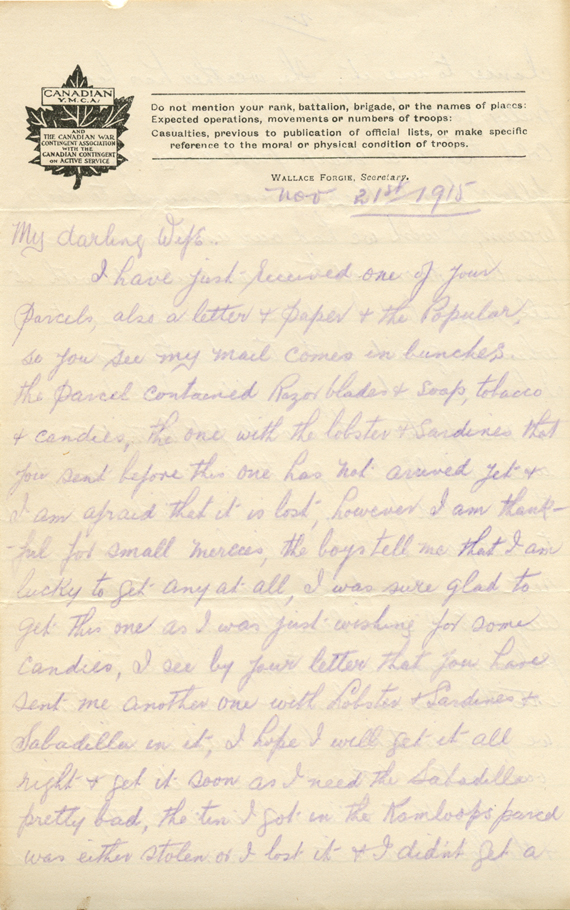 CANADIAN
Y.M.C.A.
AND
THE CANADIAN WAR
CONTINGENT ASSOCIATION
WITH THE
CANADIAN CONTINGENT
ON ACTIVE SERVICE
Do not mention your rank, battalion, brigade, or the names of places:
Expected operations, movements or numbers of troops:
Casualties, previous to publication of official lists, or make specific
reference to the moral or physical condition of troops.
WALLACE FORGIE, Secretary.
Nov 21st/1915
My darling Wife..
I have just received one of your
Parcels, also a letter & paper & the Popular,
so you see my mail comes in bunches.
the parcel contained Razor blades & soap, tobacco
& candies, the one with the lobster & Sardines that
you sent before this one has not arrived yet &
I am afraid that it is lost, however I am thank-
-ful for small mercies, the boys tell me that I am
lucky to get any at all, I was sure glad to
get this one as I was just wishing for some
candies, I see by your letter that you have
sent me another one with Lobster & Sardines &
Sabadilla in it, I hope I will get it all
right & get it soon as I need the Sabadilla
pretty bad, the tin I got in the Kamloops parcel
was either stolen or I lost it & I didn't get a